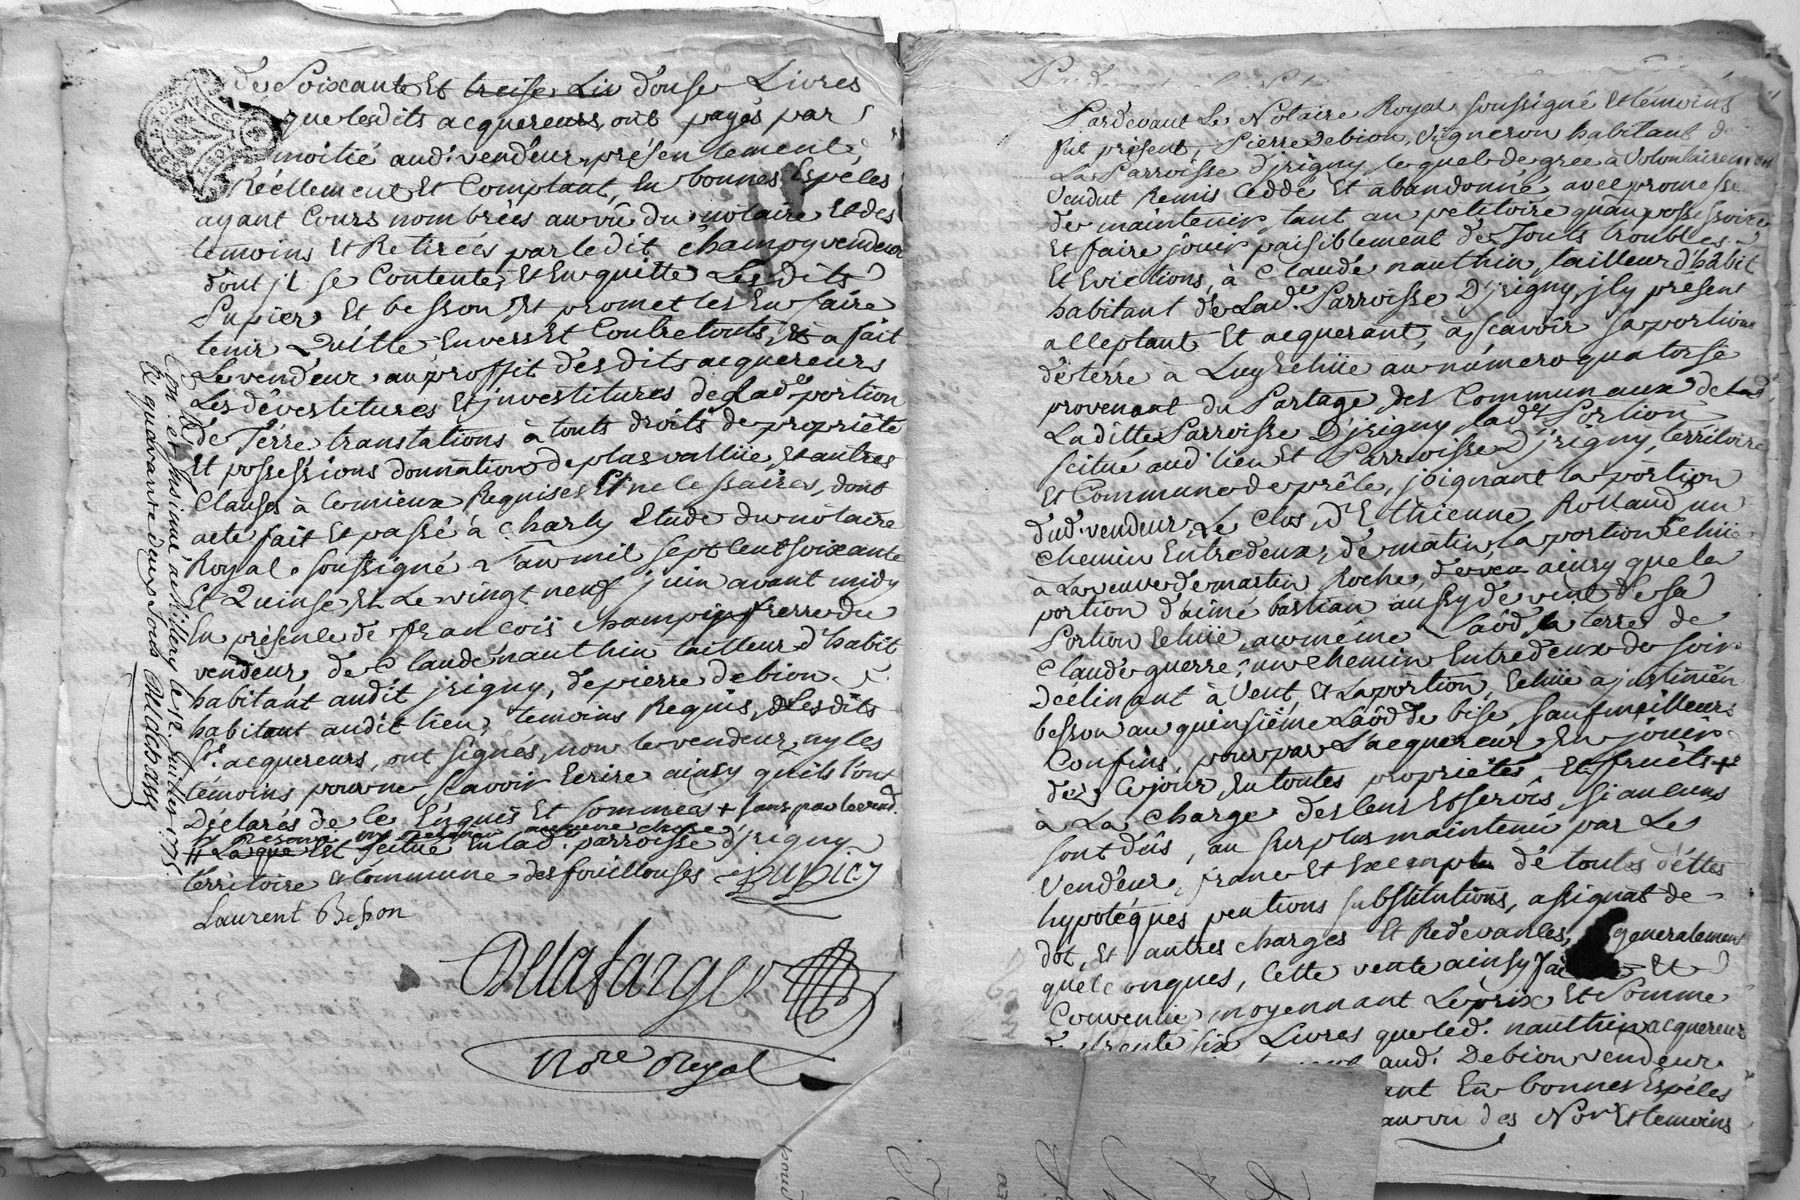 de Soixante Et treise Liv douse Livres
que lesdits acquereurs, ont payés par
moitié aud. vendeur, présentement,
Réellement Et Comptant, En bonnes Espéces
ayant Cours nombrées au vû du notaire Et des
temoins Et Retirées par ledit champoy vendeur
dont jl se Contente, Et En quitte Les dits
Pupier, Et besson Et promet les En faire
tenir Quitte Envers Et Contre touts, Et a fait
Le vendeur, au proffit desdits acquereurs
Les dévestitures Et jnvestitures de Lade. portion
de Térre translations à touts droits de propriété
Et possessions donnation de plus vallüe, Et autres
Clauses à ce mieux Requises Et necessaires, dont
acte fait Et passé à Charly Etude du notaire
Royal soussigné L'an mil sept cent soixante
Et Quinse Et Le vingt neuf juin avant midy
En présence de françois champoy frere du
vendeur, de Claude nanthin tailleur d'habit
habitant audit jrigny, de pierre debion
habitant audit lieu, temoins Requis, Lesdits
Srs. acquereurs, ont signés, non le vendeur, ny les
témoins pour ne sçavoir Ecrire ainsy qu'ils l'ont
Déclarés de ce Enquis Et sommés + sans par le vend.
Laque Est scitué En lad. parroisse d'jrigny
térritoire & Commune des fouillouses Pupier
Laurent Besson
Delafarge
Nore Royal
Con. et jnsinué, a Millery le 12. Juillet 1775.
quarante deux sous
Pardevant Le Notaire Royal soussigné Et témoins
fut présent, Pierre debion, vigneron habitant de
La Parroisse d'jrigny, lequel de gré à volontairement
Vendut Remis Ceddé Et abandonné avec promesse
de maintenir, tant au petitoire qu'au possessoire
Et faire jouir paisiblement de touts troubles
Et Evictions, à Claude nanthin tailleur d'habit
habitant de Lade. Parroisse D'jrigny, jly présent
acceptant Et acquerant, à scavoir sa portion
de térre à Luy Echüe au numéro quatorse
provenant du Partage des Communaux de lad.
Laditte Parroisse D'jrigny, lade. Portion
scitué aud. lieu Et Parroisse D'jrigny, territoire
et Commune de prêle, joignant la portion
dud. vendeur, Le Clos D'Ethienne Rolland, un
chemin Entredeux, de matin, la portion Echüe
à La veuve de martin Roche, ainsy que la
portion d'aimé bastian aussy de vent de sa
Portion Echüe, au même la terre de
Claude guerre, un chemin Entredeux de soir
Déclinant à Vent, Et La portion, Echüe à
besson au quinsième de bise, sauf meilleurs
Confins, pour par L'acquereur En jouir
dès Ce jour, En toutes propriétés Et fruits +
à La charge des Cens Et servis, si aucuns
sont dûs, au surplus maintenu par Le
Vendeur, franc Et Exempte de toutes déttes
hypotéques pentions substitutions, assignat de
dot, Et autres charges Et Redevances, generalement
quelconques, Cette vente ainsy Et
Convenüe moyennant Le prix Et Somme
trente six Livres que led. nanthin acquereur
aud. Debion vendeur
En bonnes Espéces
au vu des Nore Et temoins